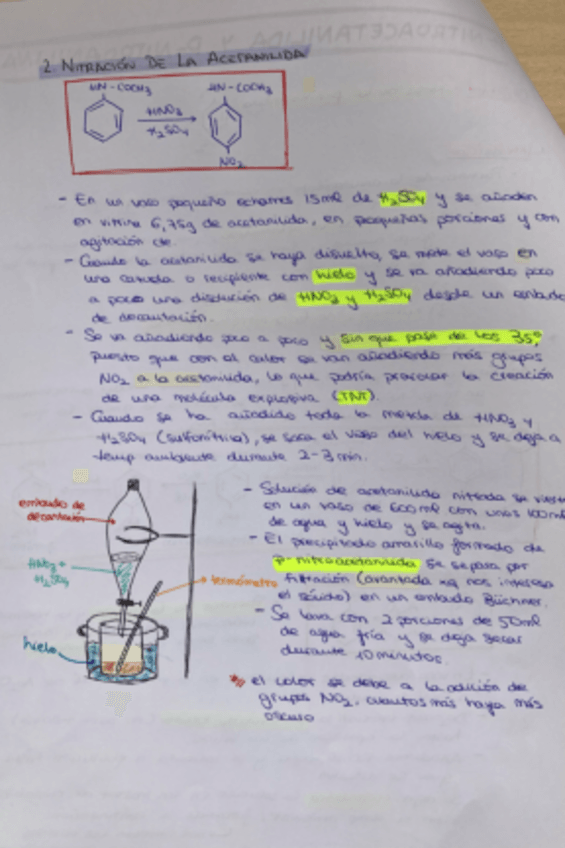 2. NITRACIÓN DE LA ACETANILIDA
HN-COCH₃
HN-COCH₃
HNO₃
H₂SO₄
NO₂
- En un vaso pequeño echamos 15ml de H₂SO₄ y se añaden
en vitrina 6,75g de acetanilida, en pequeñas porciones y con
agitación cte.
- Cuando la acetanilida se haya disuelto, se mete el vaso en
una cubeta o recipiente con hielo y se va añadiendo poco
a poco una disolución de HNO₃ y H₂SO₄ desde un embudo
de decantación.
- Se va añadiendo poco a poco y sin que pase de los 35º
puesto que con el calor se van añadiendo más grupos
NO₂ a la acetanilida, lo que podría provocar la creación
de una molécula explosiva (TNT).
- Cuando se ha añadido toda la mezcla de HNO₃ y
H₂SO₄ (sulfonítrica), se saca el vaso del hielo y se deja a
temp ambiente durante 2-3 min.
- Solución de acetanilida nitrada se vierte
en un vaso de 600ml con unos 100ml
de agua y hielo y se agita.
- El precipitado amarillo formado de
p-nitroacetanilida se separa por
filtración ( xq nos interesa
el sólido) en un embudo Büchner.
- Se lava con 2 porciones de 50ml
de agua fría y se deja secar
durante 10 minutos.
* el color se debe a la adición de
grupos NO₂, cuantos más haya más
oscuro
embudo de
decantación
HNO₃ +
H₂SO₄
termómetro
hielo